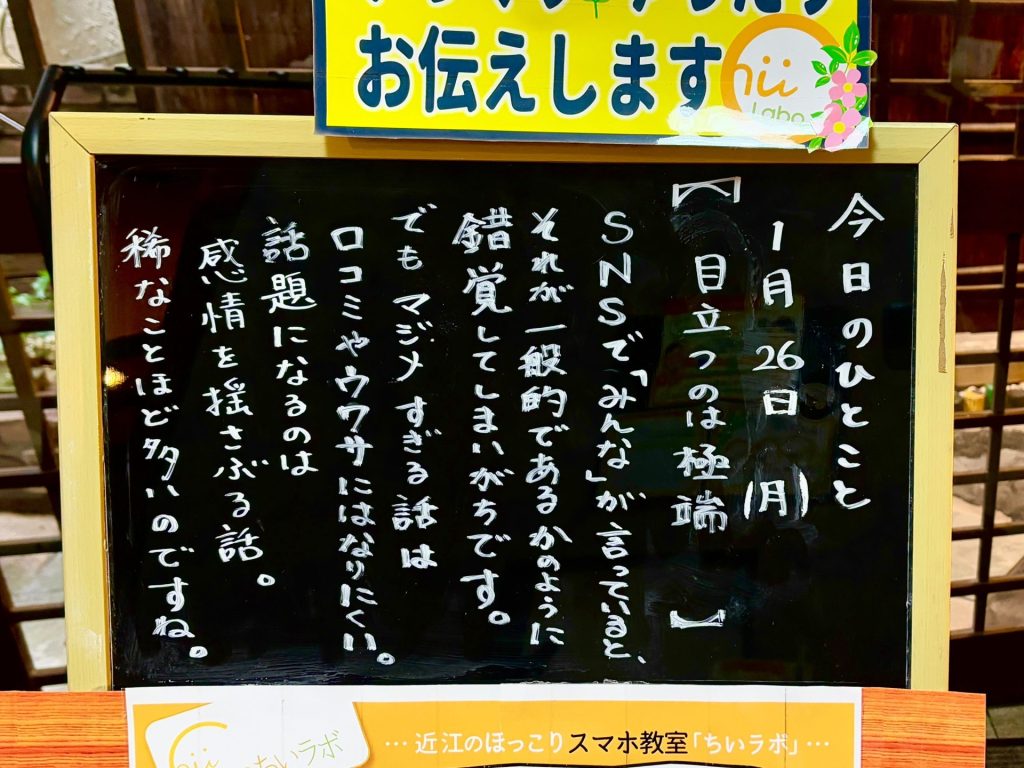 お伝えします
nii
Labo
今日のひとこと
1月26日(月)
【目立つのは極端】
SNSで「みんな」が言っていると、
それが一般的であるかのように
錯覚してしまいがちです。
でもマジメすぎる話は
口コミやウワサにはなりにくい。
話題になるのは
感情を揺さぶる話。
稀なことほど多いのですね。
ちいラボ
…近江のほっこりスマホ教室「ちいラボ」…